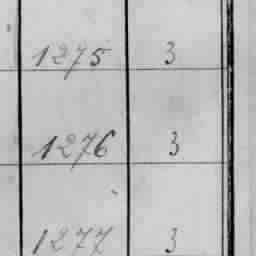 1275 3
1276 3
1277 3